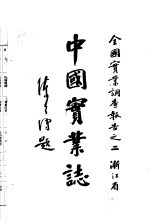 全國實業調查報告之二 浙江省
中國實業誌